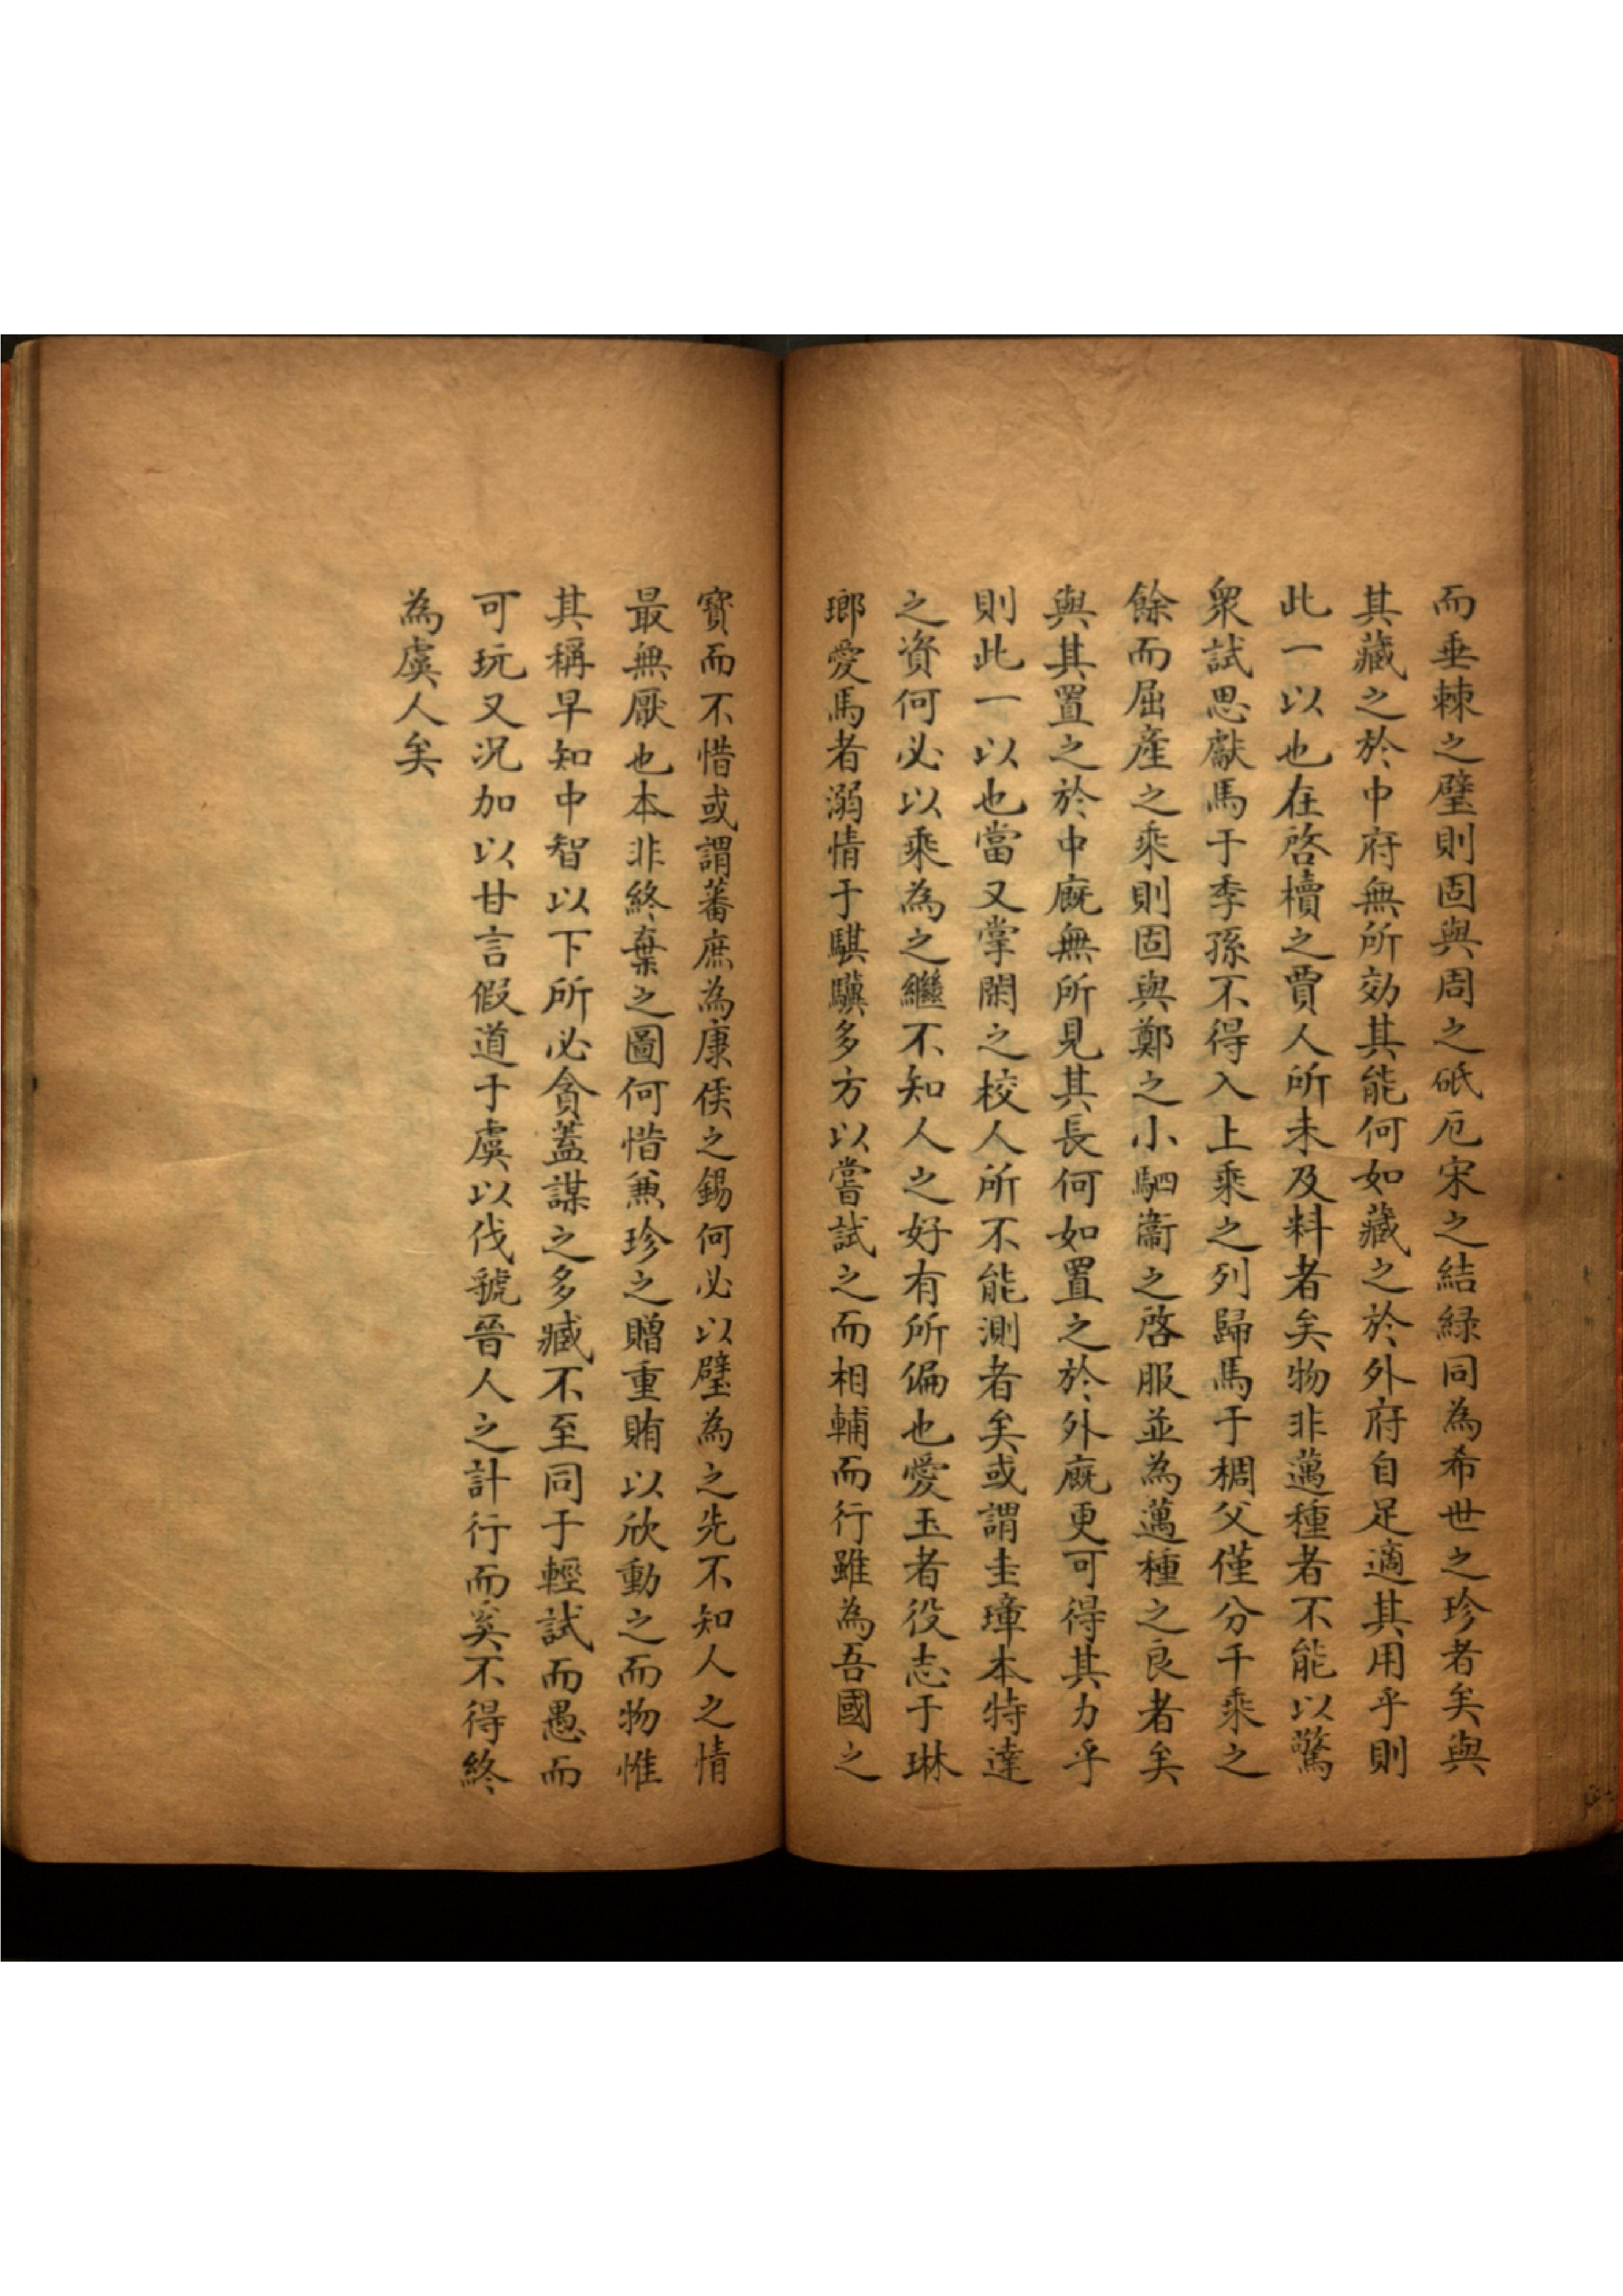 而垂棘之璧則固與周之砥厄宋之結緑同為希世之珍者矣與
其藏之於中府無所効其能何如藏之於外府自足適其用乎則
此一以也在啓櫝之賈人所未及料者矣物非邁種者不能以驚
衆試思獻馬于季孫不得入上乘之列歸馬于稠父僅分千乘之
餘而屈産之乘則固與鄭之小駟衞之啓服並為邁種之良者矣
與其置之於中廐無所見其長何如置之於外廐更可得其力乎
則此一以也當又掌閑之校人所不能測者矣或謂圭璋本特達
之資何必以乘為之繼不知人之好有所偏也愛玉者役志于琳
瑯愛馬者溺情于騏驥多方以嘗試之而相輔而行雖為吾國之
寳而不惜或謂蕃庶為康侯之錫何必以璧為之先不知人之情
最無厭也本非終棄之圖何惜兼珍之贈重賄以欣動之而物惟
其稱早知中智以下所必貪蓋謀之多臧不至同于輕試而愚而
可玩又况加以甘言假道于虞以伐虢晉人之計行而奚不得終
為虞人矣